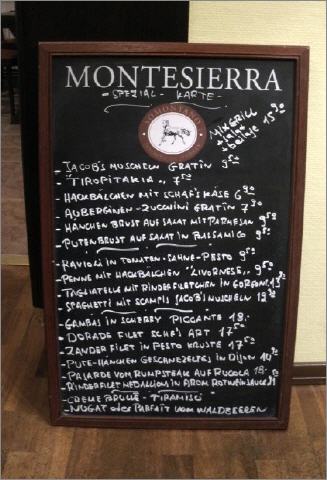 MONTESIERRA
- SPEZIAL - KARTE -
MIXGRILL 15,90
+ salat
+ beilage
- JACOB'S MUSCHELN GRATIN 9,50
- "TIROPITAKIA" 7,50
- HACKBÄLCHEN MIT SCHAFSKÄSE 6,90
- AUBERGINEN - ZUCCHINI GRATIN 7,90
- HÄNCHEN BRUST AUF SALAT MIT PARMESAN 9,50
- PUTENBRUST AUF SALAT IN BALSAMICO 9,50
- RAVIOLI IN TOMATEN - SAHNE - PESTO 9,50
- PENNE MIT HACKBÄLCHEN "LIVORNESE" 9,50
- TAGLIATELLE MIT RINDERFILETCHEN IN GORGONZ.
- SPAGHETTI MIT SCAMPIS JACOB'S MUSCHELN
- GAMBAS IN SCHERRY PICCANTE 18.-
- DORADE FILET SCHEF'S ART 17,50
- ZANDER FILET IN PESTO KRUSTE 17,50
- PUTE-HÄNCHEN GESCHNEZELTES IN DIJON
- PAIARDE VOM RUMPSTEAK AUF RUCOLA 18.-
- RINDERFILET MEDALLIONS IN AROM. ROTWEINSAUCE
- CREME BRULLE - TIRAMISU
- NUGAT oder PARFAIT VOM WALDBEEREN